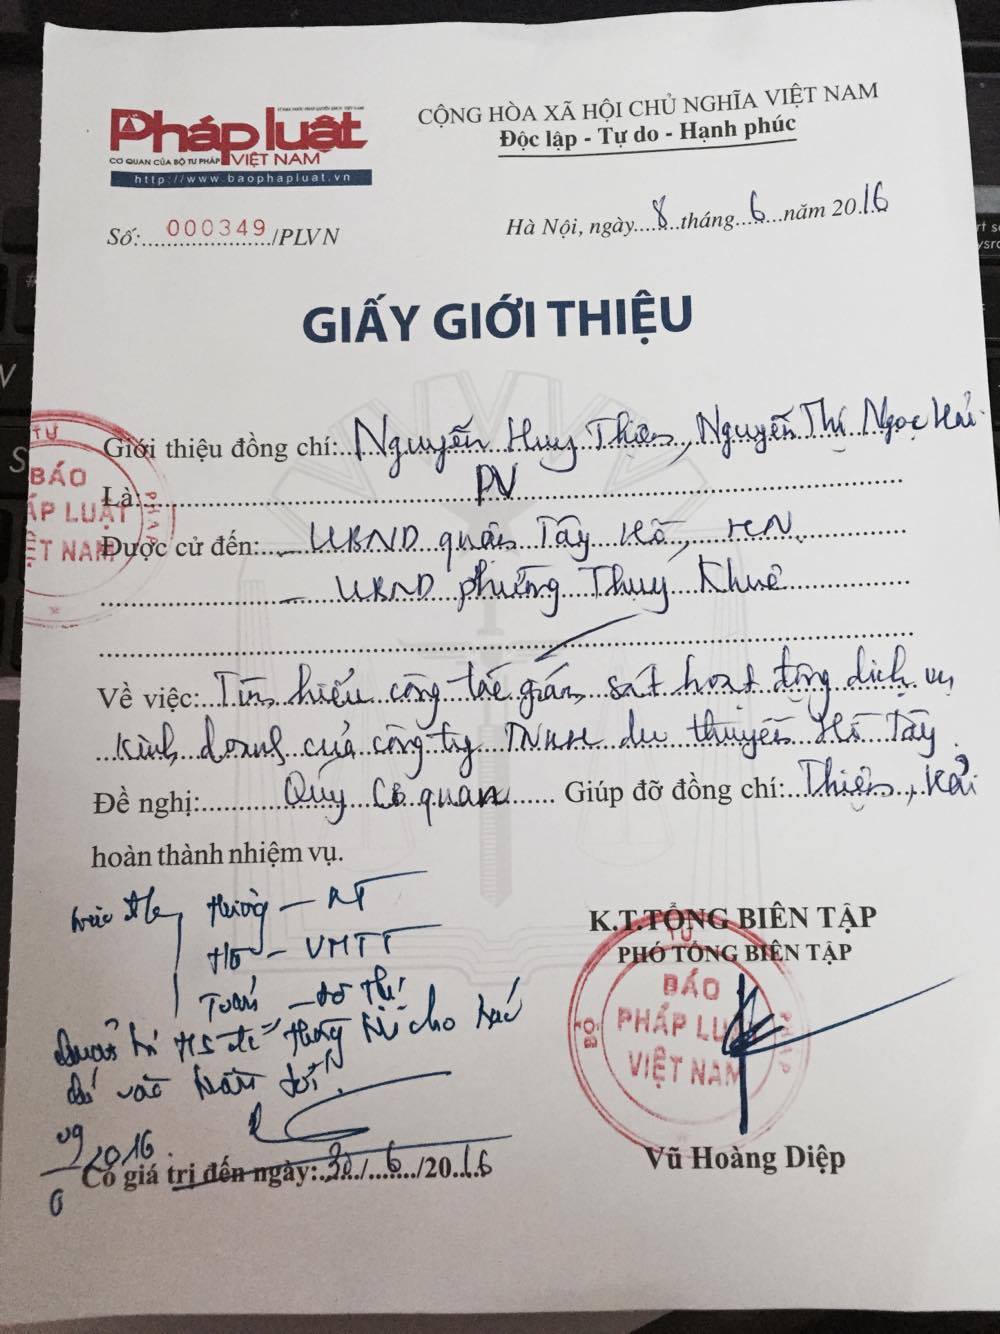 CỘNG HÒA XÃ HỘI CHỦ NGHĨA VIỆT NAM
Độc lập - Tự do - Hạnh phúc
Pháp luật
VIỆT NAM
CƠ QUAN CỦA BỘ TƯ PHÁP
http://www.baophapluat.vn
Số:......000349....../PLVN
Hà Nội, ngày....8....tháng....6....năm 20.16
GIẤY GIỚI THIỆU
Giới thiệu đồng chí: Nguyễn Huy Thiện, Nguyễn Thị Ngọc Hải
Là: PV
Được cử đến: - UBND quận Tây Hồ, HN.
- UBND phường Thụy Khuê
Về việc: Tìm hiểu công tác giám sát hoạt động dịch vụ
kinh doanh của công ty TNHH du thuyền Hồ Tây.
Đề nghị: Quý Cơ quan Giúp đỡ đồng chí: Thiện, Hải
hoàn thành nhiệm vụ.
K.T.TỔNG BIÊN TẬP
PHÓ TỔNG BIÊN TẬP
BÁO
PHÁP LUẬT
VIỆT NAM
BỘ TƯ PHÁP
BÁO
PHÁP LUẬT
VIỆT NAM
TƯ PHÁP
- VMTT
- đô thị
cho
2016
Vũ Hoàng Diệp
Có giá trị đến ngày: 30/...6.../2016